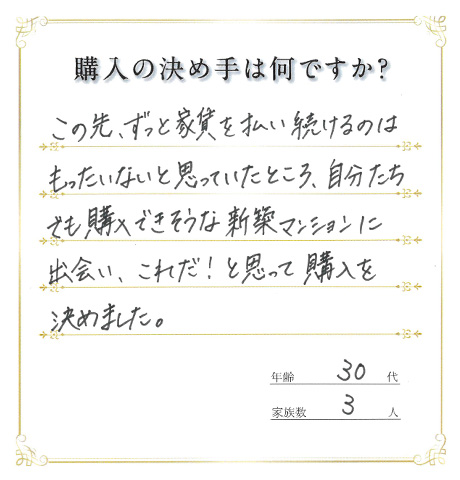 購入の決め手は何ですか?
この先、ずっと家賃を払い続けるのは
もったいないと思っていたところ、自分たち
でも購入できそうな新築マンションに
出会い、これだ！と思って購入を
決めました。
年齢 30 代
家族数 3 人